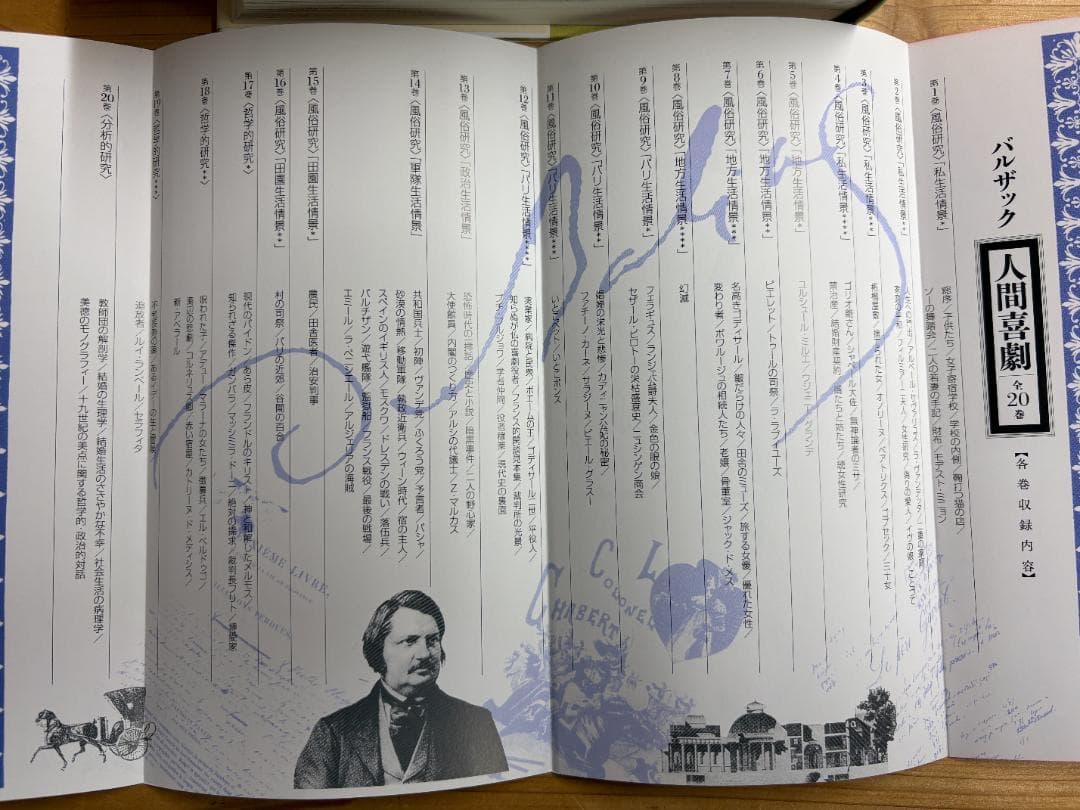 バルザック
人間喜劇
全20巻
【各巻収録内容】
第1巻〈風俗研究〉「私生活情景*」
総序/子供たち/女子寄宿学校/学校の内側/鞠打つ猫の店/
ソーの舞踏会/二人の若妻の手記/財布/モデスト・ミニョン
第2巻〈風俗研究〉「私生活情景**」
第3巻〈風俗研究〉「私生活情景***」
棄てられた女/オノリーヌ/ベアトリクス/ゴプセック/三十女
第4巻〈風俗研究〉「私生活情景****」
ゴリオ爺さん/シャベール大佐/無神論者のミサ/
禁治産/結婚財産契約/続女性研究
第5巻〈風俗研究〉「地方生活情景*」
ユルシュール・ミルエ/ウジェニー・グランデ
第6巻〈風俗研究〉「地方生活情景**」
ピエレット/トゥールの司祭/ラ・ラブイユーズ
第7巻〈風俗研究〉「地方生活情景***」
名高きゴディサール/皺だらけの人々/田舎のミューズ/旅する女優/優れた女性/
変わり者/ボワルージュの相続人たち/老嬢/骨董室/ジャック・ド・メス
第8巻〈風俗研究〉「地方生活情景****」
幻滅
第9巻〈風俗研究〉「パリ生活情景*」
フェラギュス/ランジェ公爵夫人/金色の眼の娘/
セザール・ビロトーの栄枯盛衰史/ニュシンゲン商会
第10巻〈風俗研究〉「パリ生活情景**」
娼婦の栄光と悲惨/カディニャン公妃の秘密/
ファチーノ・カーネ/サラジーヌ/ピエール・グラスー
第11巻〈風俗研究〉「パリ生活情景***」
いとこベット/いとこポンス
第12巻〈風俗研究〉「パリ生活情景****」
実業家/病院と民衆/ボエームの王/ゴディサール二世/平役人/
知らぬが仏の喜劇役者/フランス的閑談見本集/裁判所の光景/
プチ・ブルジョワ/学者仲間/役者稼業/現代史の裏面
第13巻〈風俗研究〉「政治生活情景」
恐怖時代の一挿話/歴史と小説/暗黒事件/二人の野心家/
大使館員/内閣のつくり方/アルシの代議士/Z・マルカス
第14巻〈風俗研究〉「軍隊生活情景」
共和国兵士/初陣/ヴァンデ党/ふくろう党/予言者/パシャ/
砂漠の情熱/移動軍隊/執政近衛兵/ウィーン時代/宿の主人/
スペインのイギリス人/モスクワ/ドレスデンの戦い/落伍兵/
パルチザン/遊弋艦隊/監獄船/フランス戦役/最後の戦場/
エミール/ラ・ペニシエール/アルジェリアの海賊
第15巻〈風俗研究〉「田園生活情景*」
農民/田舎医者/治安判事
第16巻〈風俗研究〉「田園生活情景**」
村の司祭/パリの近郊/谷間の百合
第17巻〈哲学的研究*〉
現代のパイドン/あら皮/フランドルのキリスト/神と和解したメルモス/
知られざる傑作/ガンバラ/マッシミラ・ドーニ/絶対の探求/裁判長フリト/博愛家
第18巻〈哲学的研究**〉
呪われた王/アデュー/マラーナの女たち/徴募兵/エル・ベルドゥゴ/
海辺の悲劇/コルネリュス卿/赤い宿屋/カトリーヌ・ド・メディシス/
新・アベラール
第19巻〈哲学的研究***〉
追放者/ルイ・ランベール/セラフィタ
第20巻〈分析的研究〉
教師団の解剖学/結婚の生理学/結婚生活のささやかな不幸/社会生活の病理学/
美徳のモノグラフィー/十九世紀の美点に関する哲学的・政治的対話
Balzac
LE
COLONEL
CHABERT
IEME LIVRE.
ILLUSIONS PERDUES